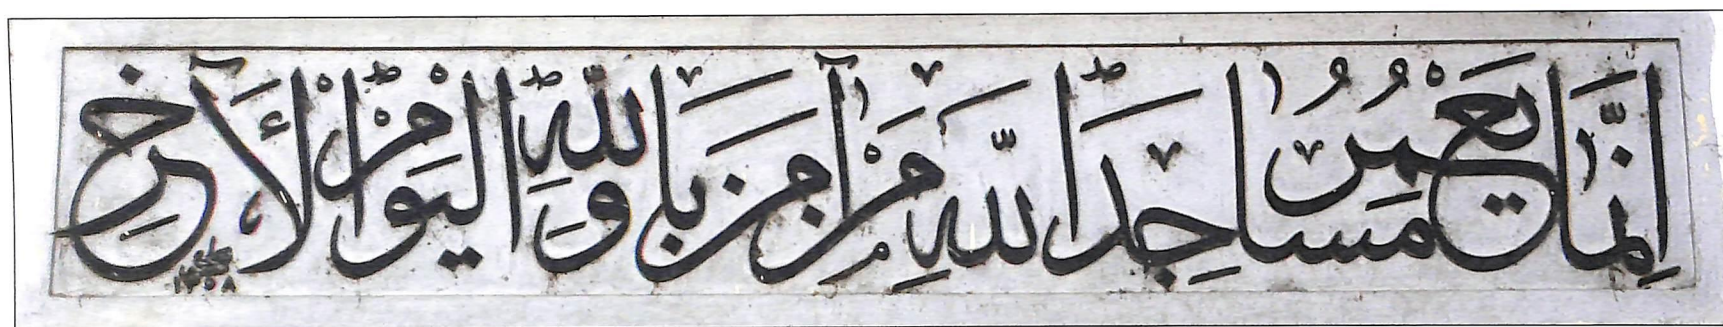 إِنَّمَا يَعْمُرُ مَسَاجِدَ اللَّهِ مَنْ آمَنَ بِاللَّهِ وَالْيَوْمِ الْآخِرِ
١٣٥٨